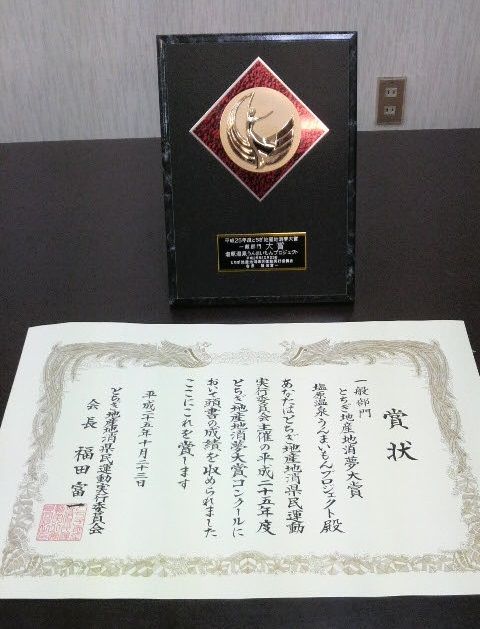 平成25年度とちぎ地産地消夢大賞
一般部門 大賞
塩原温泉うんまいもんプロジェクト
賞状
一般部門
とちぎ地産地消夢大賞
塩原温泉うんまいもんプロジェクト殿
あなたはとちぎ地産地消県民運動
実行委員会主催の平成二十五年度
とちぎ地産地消夢大賞コンクールに
おいて頭書の成績を収められました
ここにこれを賞します
平成二十五年十月二十三日
とちぎ地産地消県民運動実行委員会
会長 福田富一